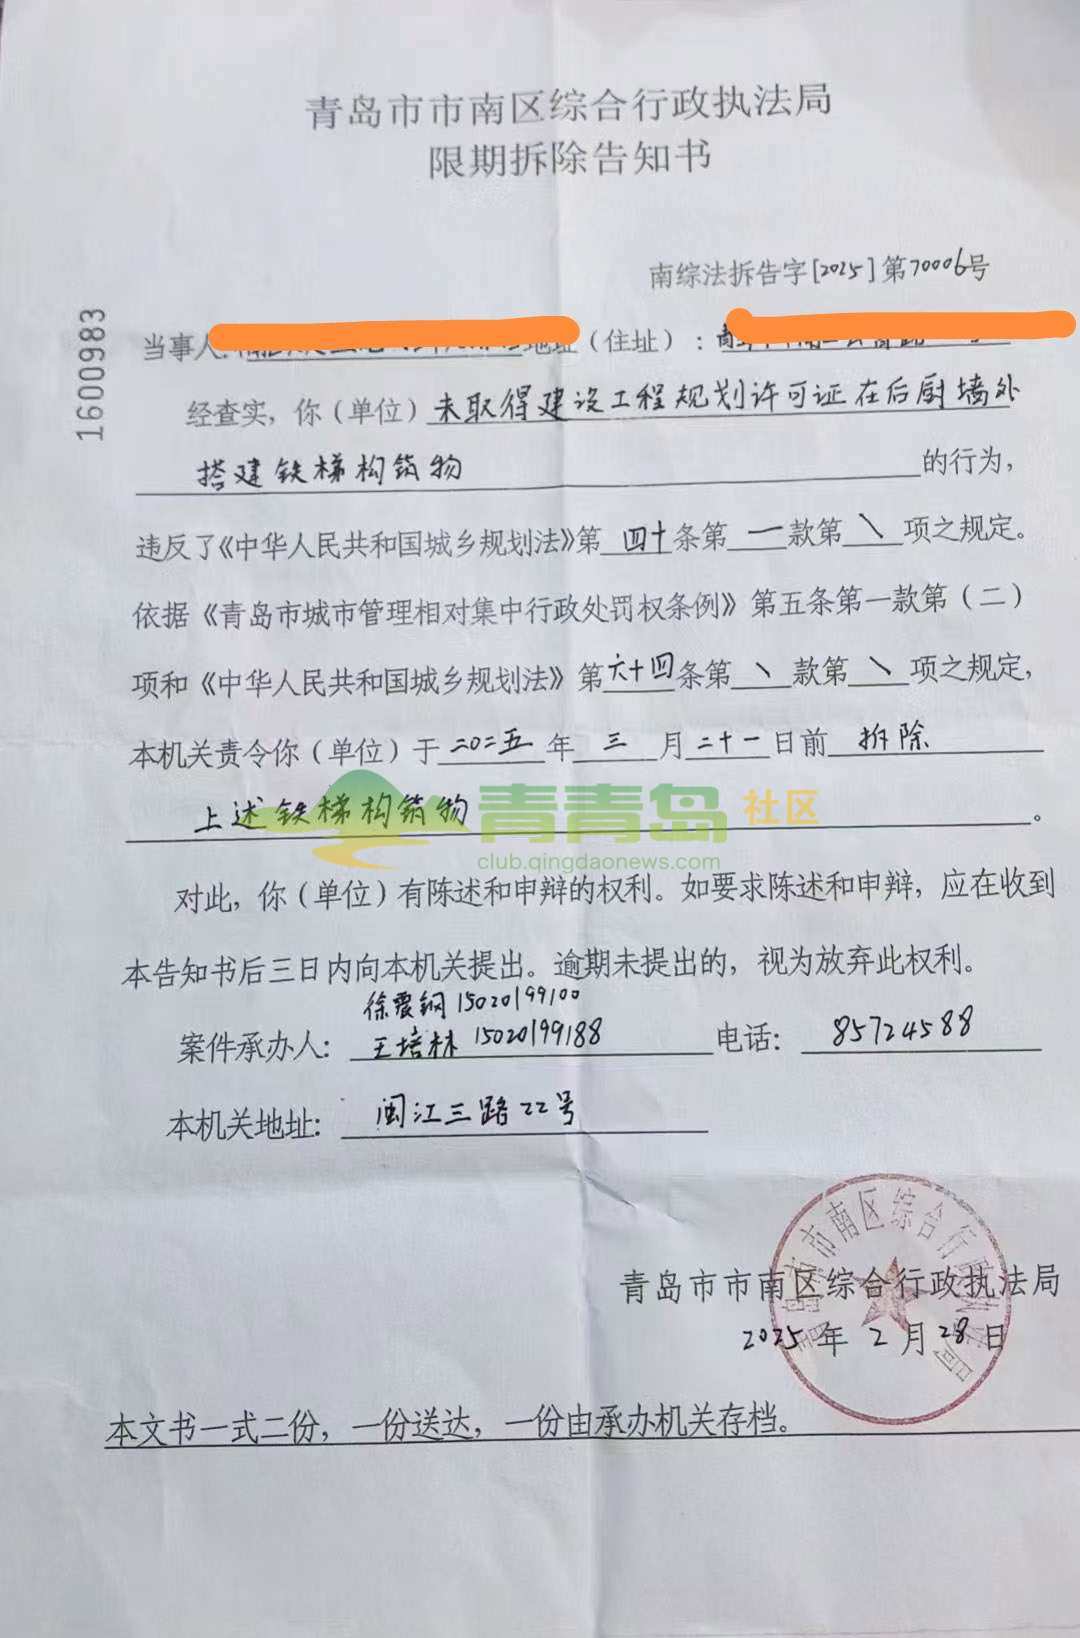 青岛市市南区综合行政执法局
限期拆除告知书
南综法拆告字[2025]第70006号
1600983
当事人: 地址（住址）:
经查实，你（单位）未取得建设工程规划许可证在后厨墙处
搭建铁梯构筑物 的行为，
违反了《中华人民共和国城乡规划法》第四十条第一款第\项之规定。
依据《青岛市城市管理相对集中行政处罚权条例》第五条第一款第（二）
项和《中华人民共和国城乡规划法》第六十四条第\款第\项之规定，
本机关责令你（单位）于二〇二五年三月二十一日前 拆除
上述铁梯构筑物 。
青青岛社区
club.qingdaonews.com
对此，你（单位）有陈述和申辩的权利。如要求陈述和申辩，应在收到
本告知书后三日内向本机关提出。逾期未提出的，视为放弃此权利。
徐震钢 15020199100
案件承办人: 王培林 15020199188 电话: 85724588
本机关地址: 闽江三路22号
青岛市市南区综合行政执法局
青岛市市南区综合行政执法局
2025年2月28日
本文书一式二份，一份送达，一份由承办机关存档。